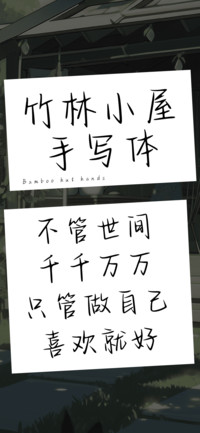 竹林小屋
手写体
Bamboo hut hands
不管世间
千千万万
只管做自己
喜欢就好